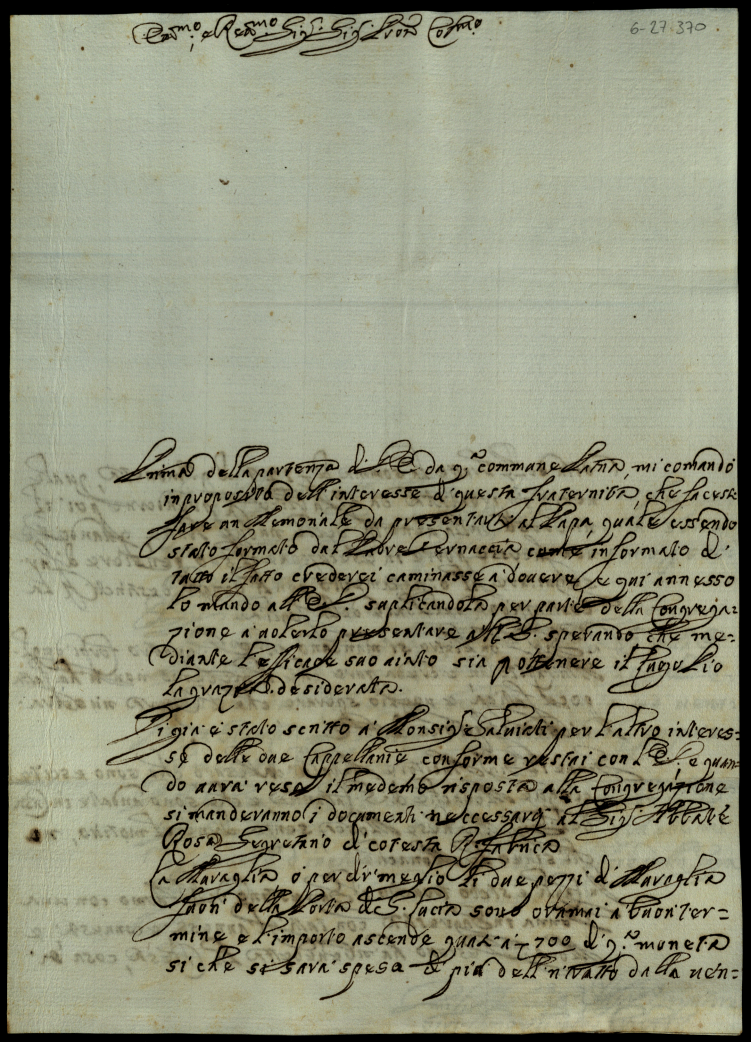 Em.mo e Re.mo Sig.r Sig.r Pron Col.mo
6-27.370
Prima della partenza di V.E. da q.a commune Patria, mi comandò
in proposito dell'interesse di questa fraternità, che facessi
fare un Memoriale da presentarsi al Papa, quale essendo
stato formato dal Padre Vernaccia come informato di
tutto il fatto crederei caminasse a dovere, e qui annesso
lo mando all'E.V. suplicandola per parte della Congrega-
zione a volerlo presentare a N.S. sperando che me-
diante l'efficace suo aiuto sia p ottenere il
la grazia desiderata.
Di già è stato scritto à Monsig.re Salviati per l'altro interes-
se delle due Cappellanie conforme restai con l'E.V. e quan-
do avrà reso il medemo risposta alla Congregazione
si manderanno i documenti neccessarij al Sig.r Abbate
Rosa Segretario di cotesta R. Fabrica
La Muraglia, ò per dir meglio li due pezzi di Muraglia
fuori della Porta di S. Lucia sono oramai a buon ter=
mine e l'importo ascende quasi à 700 di q.a moneta
si che si sarà speso di più dell'ritratto dalla ven=